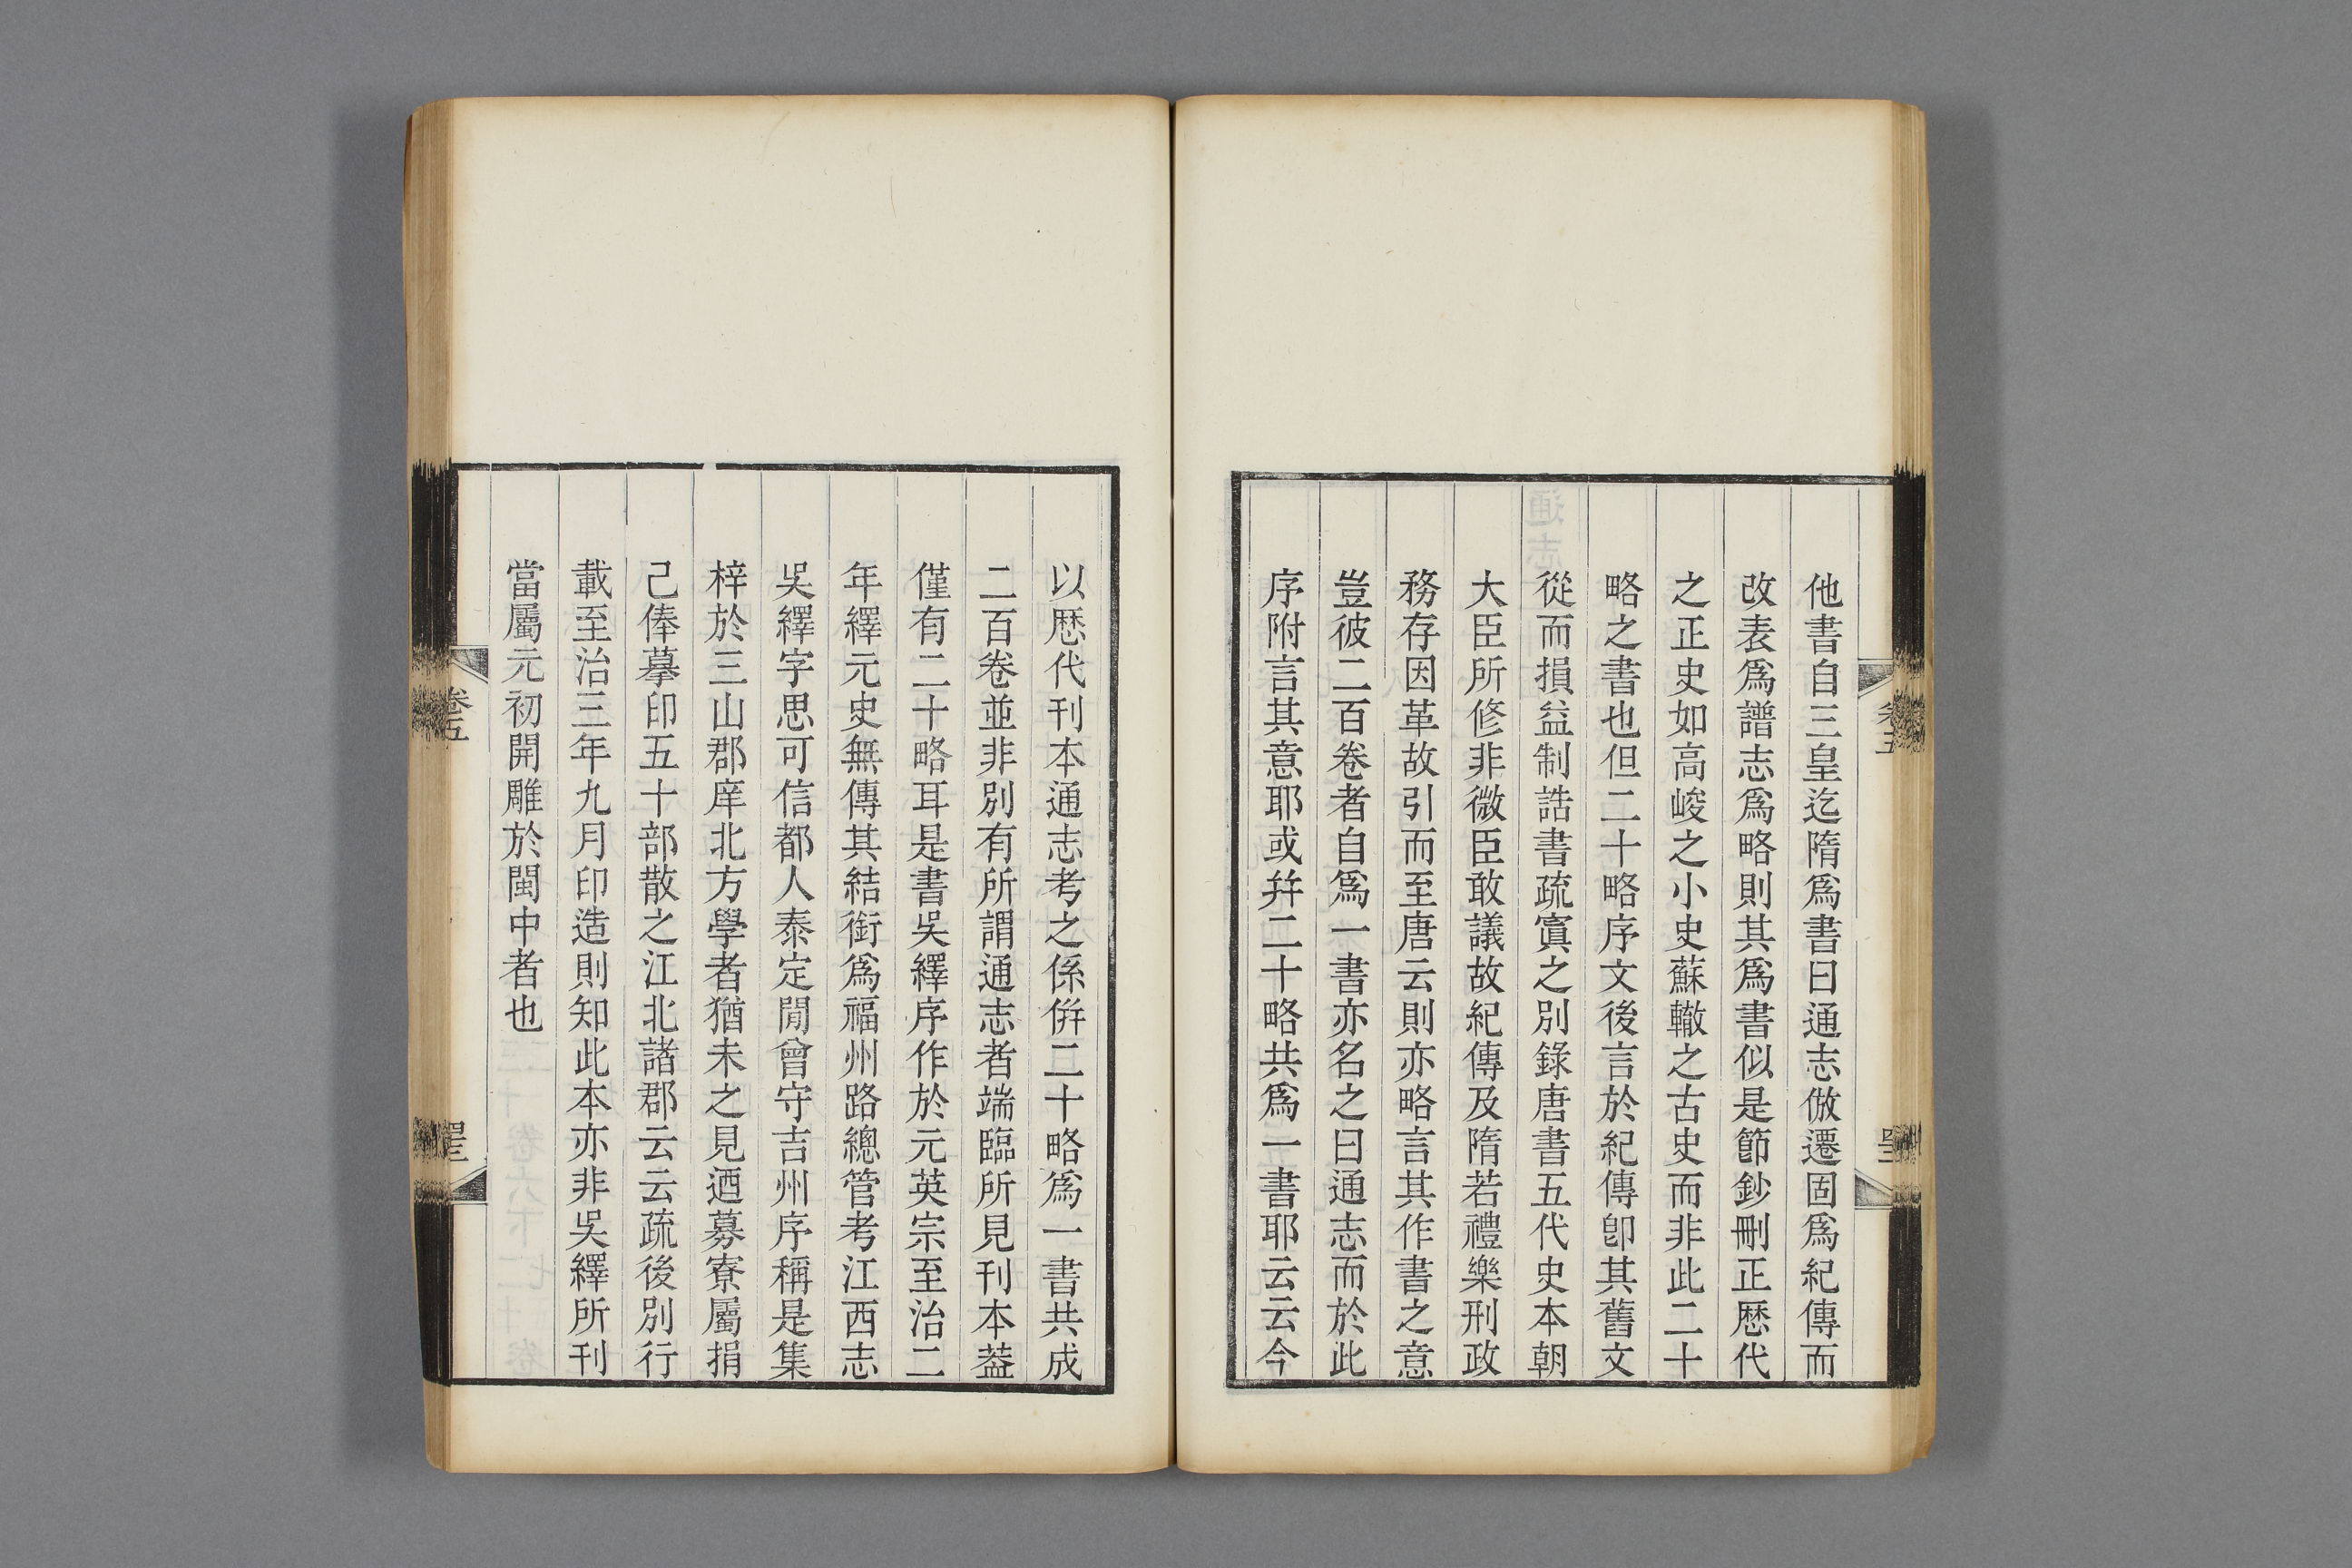 他書自三皇迄隋爲書曰通志倣遷固爲紀傳而
改表爲譜志爲略則其爲書似是節鈔刪正歷代
之正史如高峻之小史蘇轍之古史而非此二十
略之書也但二十略序文後言於紀傳卽其舊文
從而損益制誥書疏寘之別錄唐書五代史本朝
大臣所修非微臣敢議故紀傳及隋若禮樂刑政
務存因革故引而至唐云則亦略言其作書之意
豈彼二百卷者自爲一書亦名之曰通志而於此
序附言其意耶或幷二十略共爲一書耶云云今
以歷代刊本通志考之係倂二十略爲一書共成
二百卷並非別有所謂通志者端臨所見刊本葢
僅有二十略耳是書吳繹序作於元英宗至治二
年繹元史無傳其結銜爲福州路總管考江西志
吳繹字思可信都人泰定閒曾守吉州序稱是集
梓於三山郡庠北方學者猶未之見迺募寮屬捐
己俸摹印五十部散之江北諸郡云云疏後別行
載至治三年九月印造則知此本亦非吳繹所刊
當屬元初開雕於閩中者也
卷五